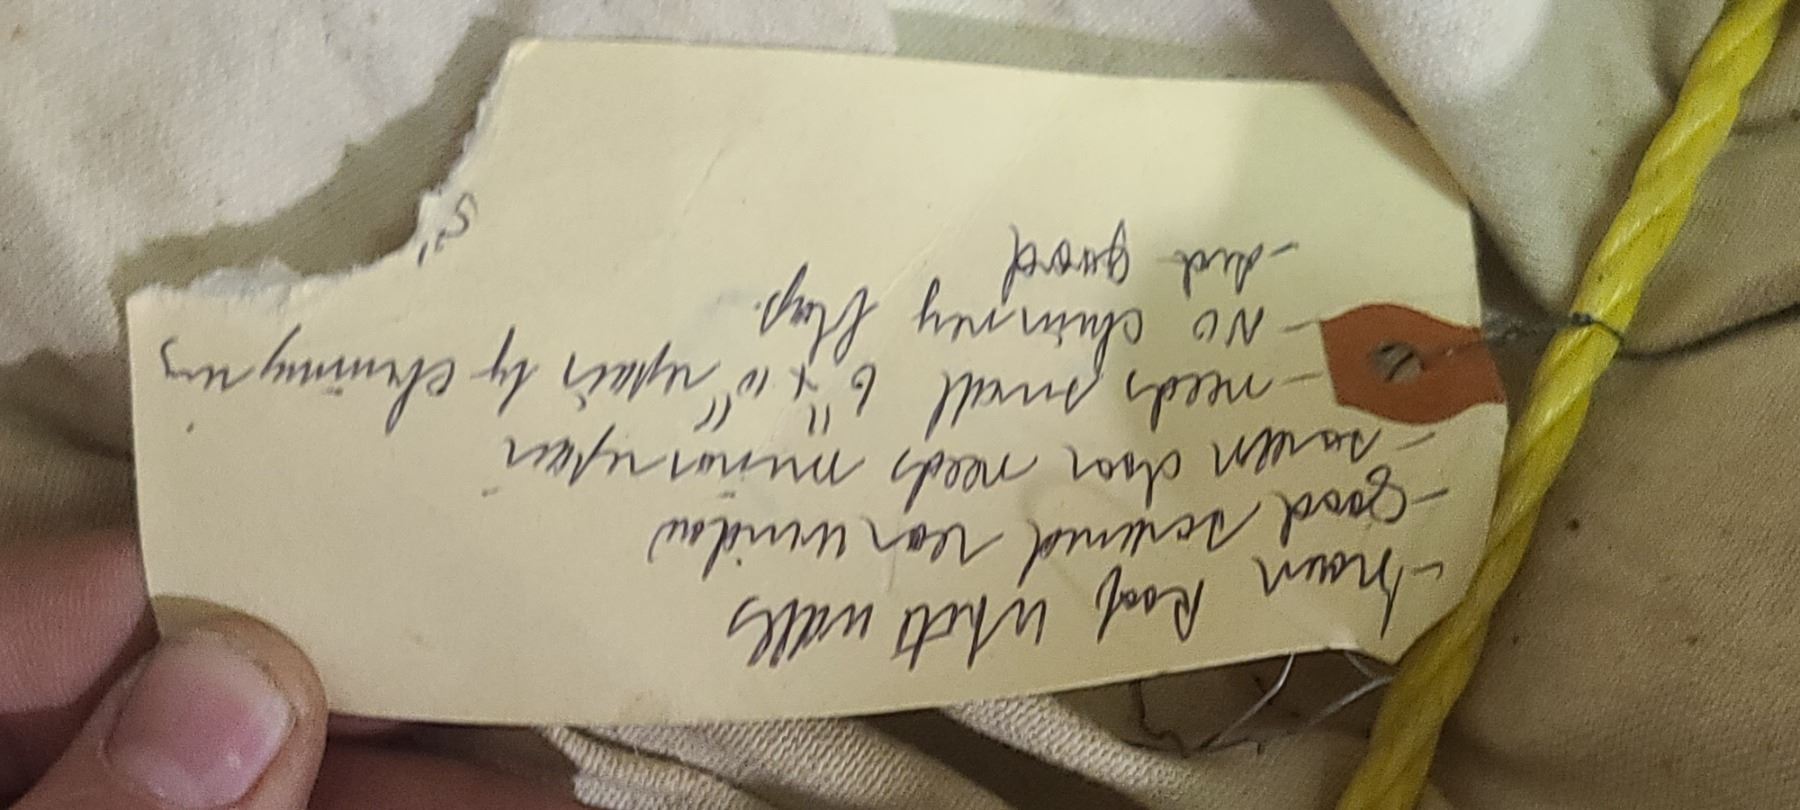 - brown Roof white walls
- good screened rear window
- screen door needs minor repair
- needs small 6" x 10" repair by chimney ring
- No chimney flap.
- sod good
5'